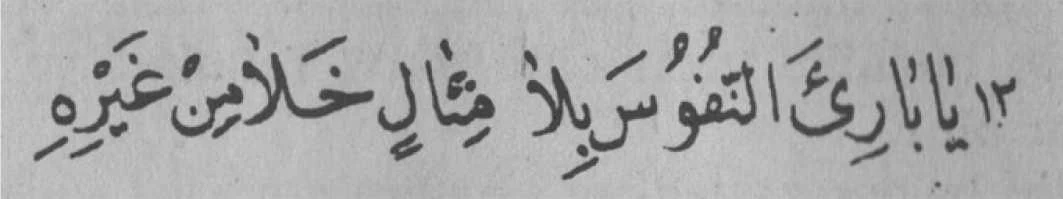 ١٢ يٰا بٰارِئَ النُّفُوُسَ بِلاٰ مِثٰالٍ خَلاٰ مِنْ غَيْرِهِ